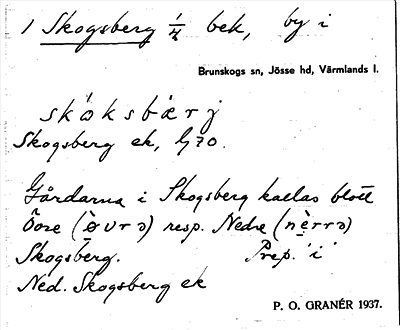 1 Skogsberg 1/4 bek, by i
Brunskogs sn, Jösse hd, Värmlands l.
skɷksbærj
Skogsberg ek, G70.
Gårdarna i Skogsberg kallas blott
Övre (øvrə) resp. Nedre (nèrrə)
Skogsberg. Prep. 'i'
Ned. Skogsberg ek
P. O. GRANÉR 1937.